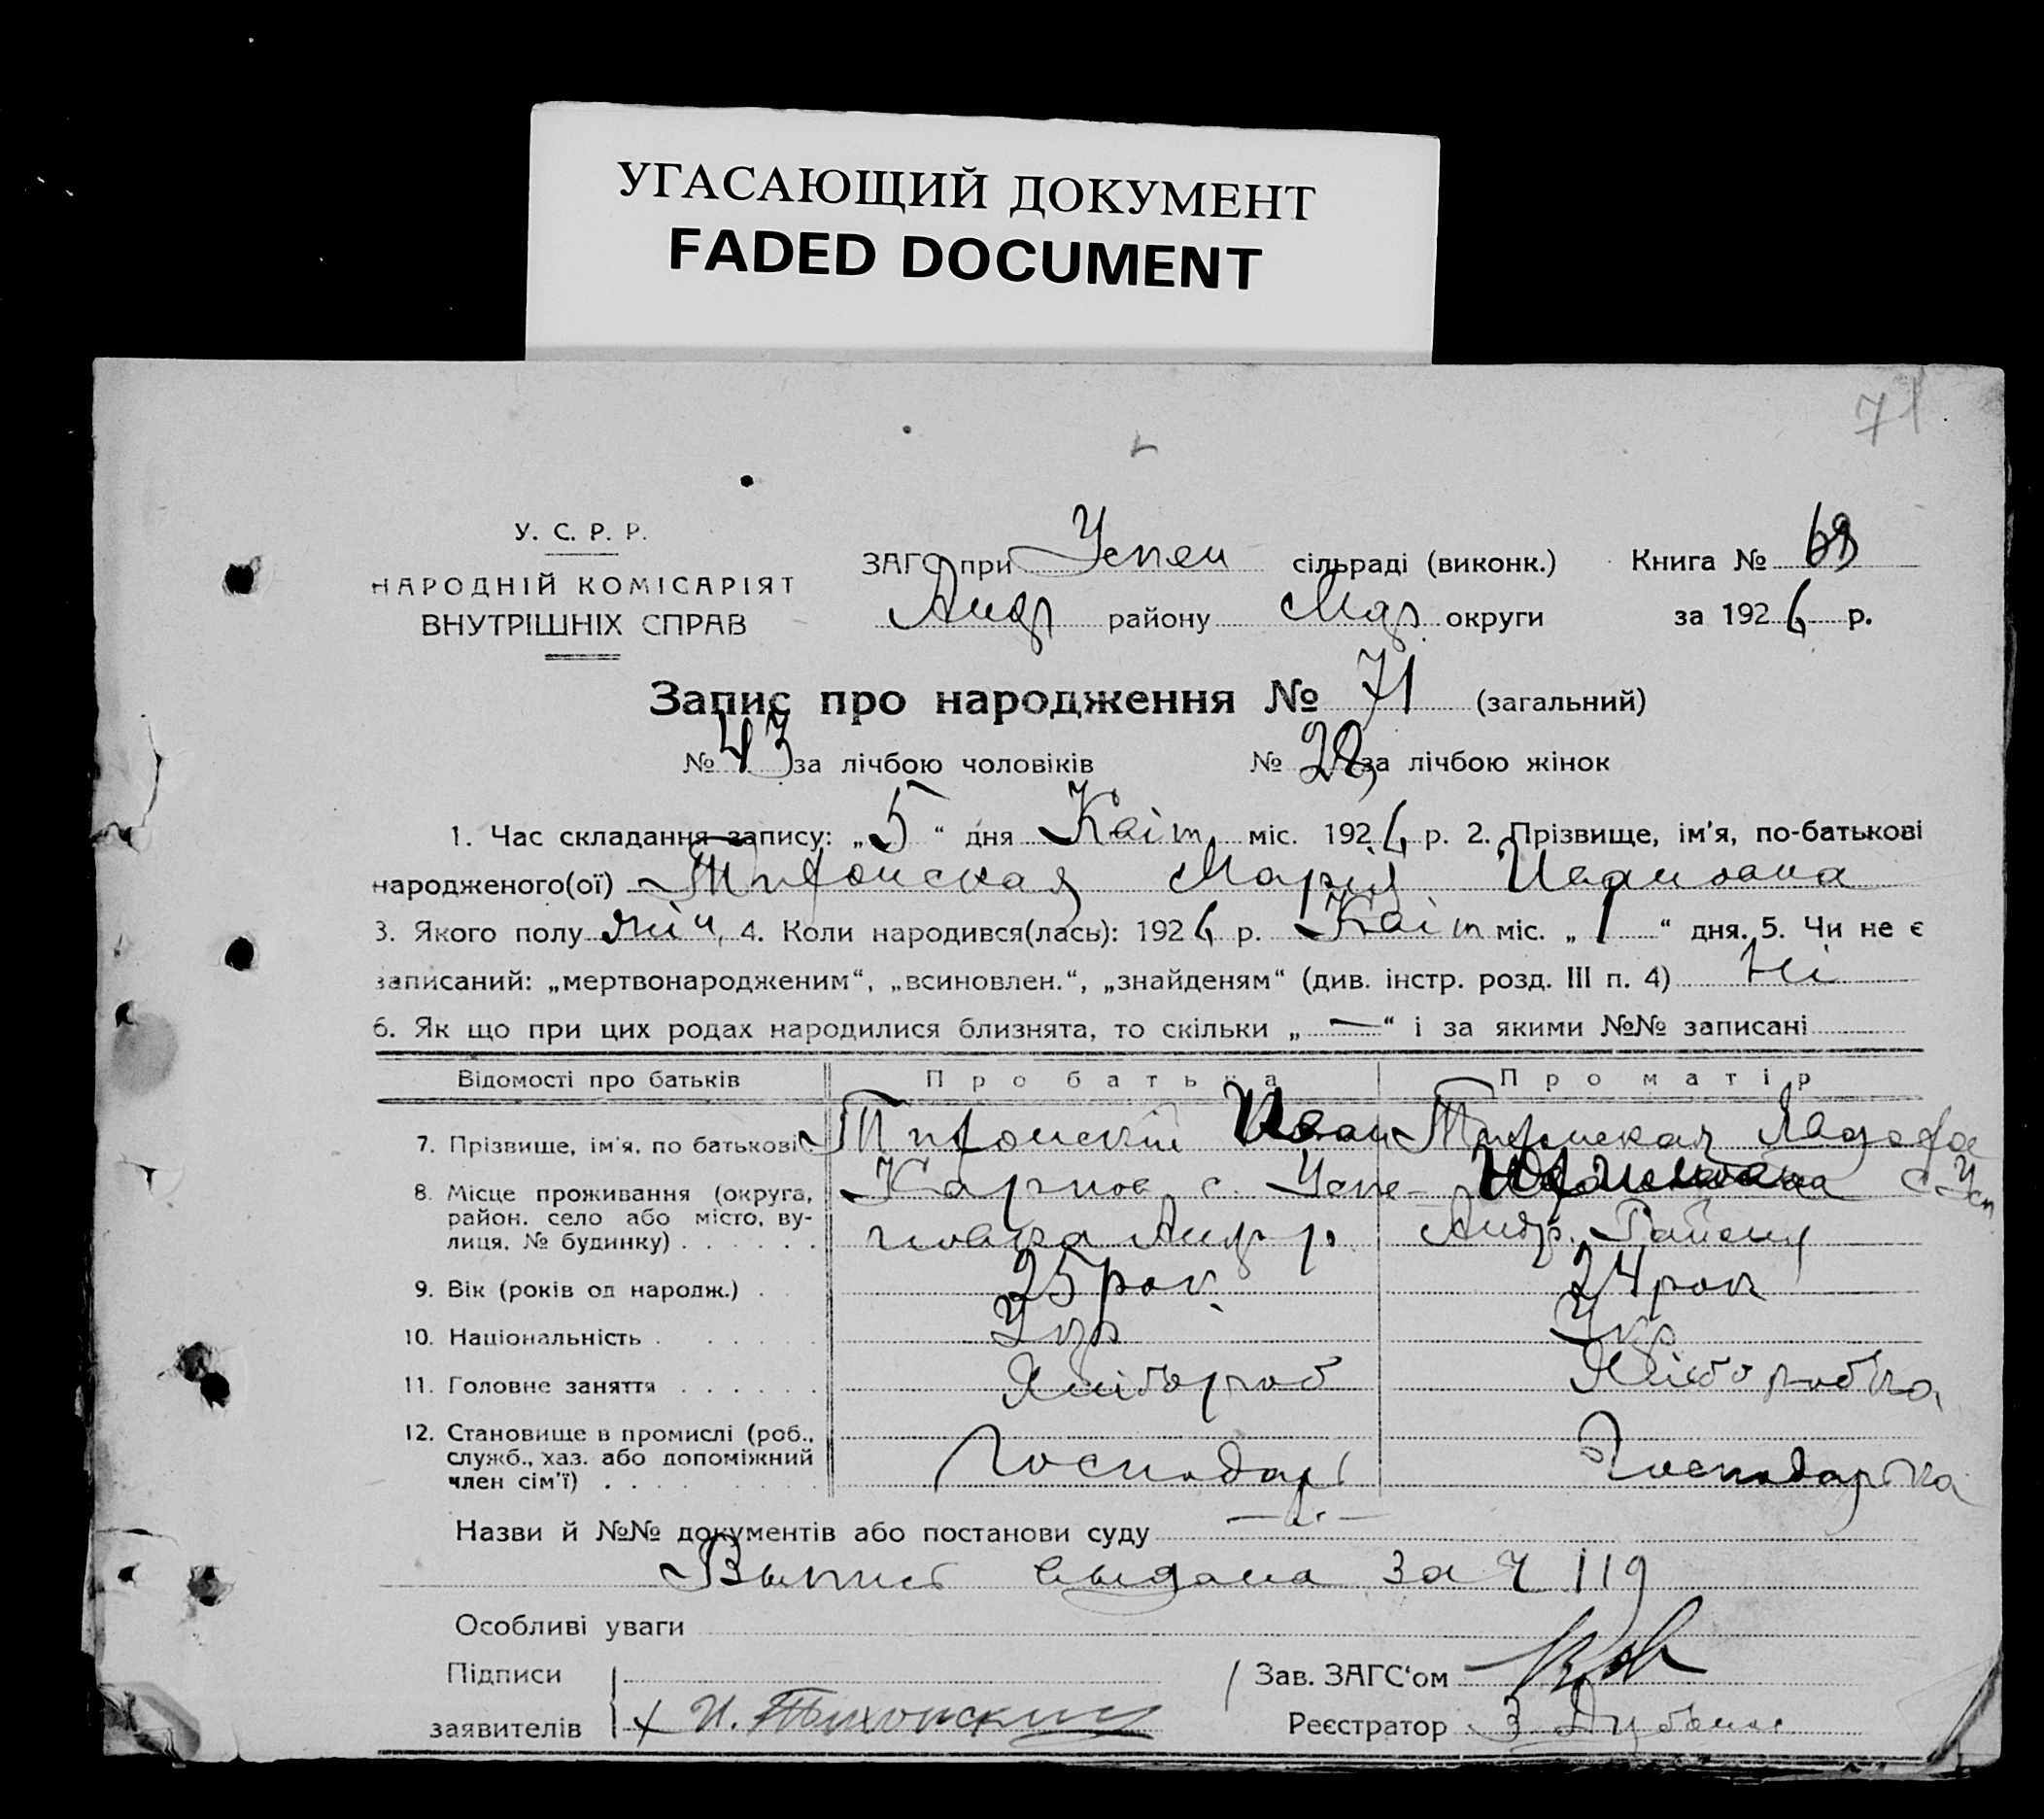 УГАСАЮЩИЙ ДОКУМЕНТ
FADED DOCUMENT
71
У. С. Р. Р.
НАРОДНІЙ КОМІСАРІЯТ
ВНУТРІШНІХ СПРАВ
ЗАГС при Успен сільраді (виконк.) Книга №
Андр району округи за 1926 р.
Запис про народження № 71 (загальний)
№ 43 за лічбою чоловіків № 28 за лічбою жінок
1. Час складання запису: „5“ дня Квіт міс. 1926 р. 2. Прізвище, ім'я, по-батькові
народженого(ої) Тихонская Мария Ивановна
3. Якого полу жіч. 4. Коли народився(лась): 1926 р. Квіт міс. „1“ дня. 5. Чи не є
записаний: „мертвонародженим“, „всиновлен.“, „знайденям“ (див. інстр. розд. III п. 4) Ні
6. Як що при цих родах народилися близнята, то скільки „—“ і за якими №№ записані
Відомості про батьків Про батька Про матір
7. Прізвище, ім'я, по батькові Тихонский Иван Тихонская
8. Місце проживання (округа, район, село або місто, вулиця, № будинку) Карпов с. Успеновка Андр р. с Усп Андр. Району
9. Вік (років од народж.) 25 рок. 24 рок
10. Національність Укр Укр
11. Головне заняття Хліборроб Хліборобка
12. Становище в промислі (роб., служб., хаз. або допоміжний член сім'ї) Господарь Господарька
Назви й №№ документів або постанови суду —"—
Выпись выдана за ч 119
Особливі уваги
Підписи
заявителів И. Тихонский
Зав. ЗАГС'ом
Реєстратор З